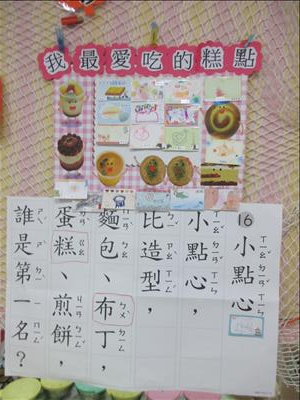 我最愛吃的糕點
16 小點心
小點心，
比造型，
麵包、布丁，
蛋糕、煎餅，
誰是第一名？